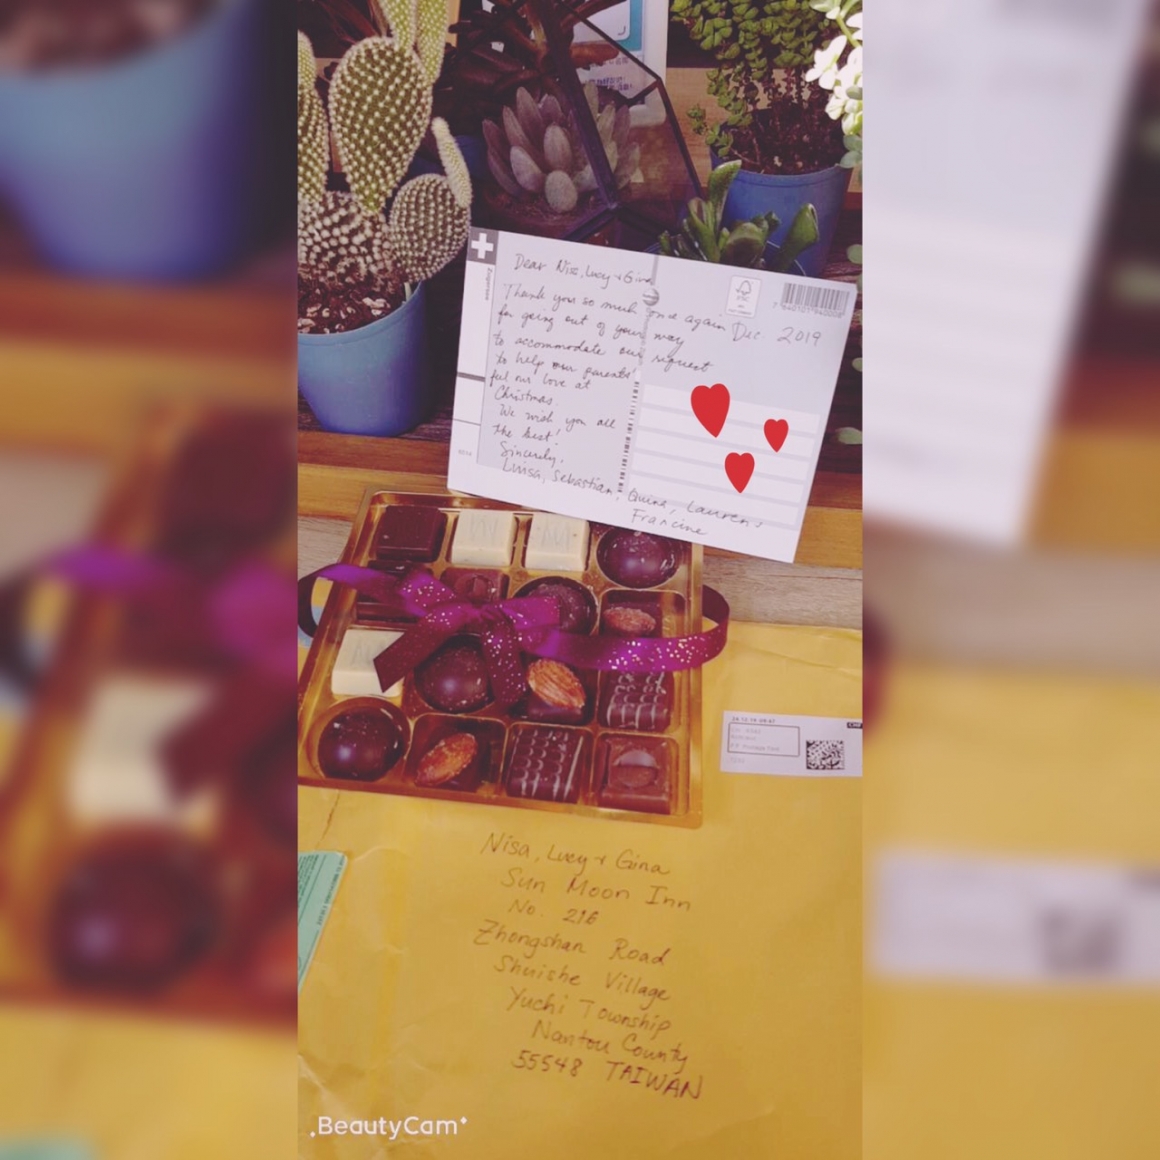 Dear Nisa, Lucy + Gina
Thank you so much once again
for going out of your way
to accommodate our request
to help our parents'
feel our love at
Christmas.
We wish you all
the best!
Sincerely,
Luisa, Sebastian, Quinn, Lauren &
Francine
Dec 2019
FSC
7 640101 940008
Nisa, Lucy + Gina
Sun Moon Inn
No. 216
Zhongshan Road
Shuishe Village
Yuchi Township
Nantou County
55548 TAIWAN
BeautyCam